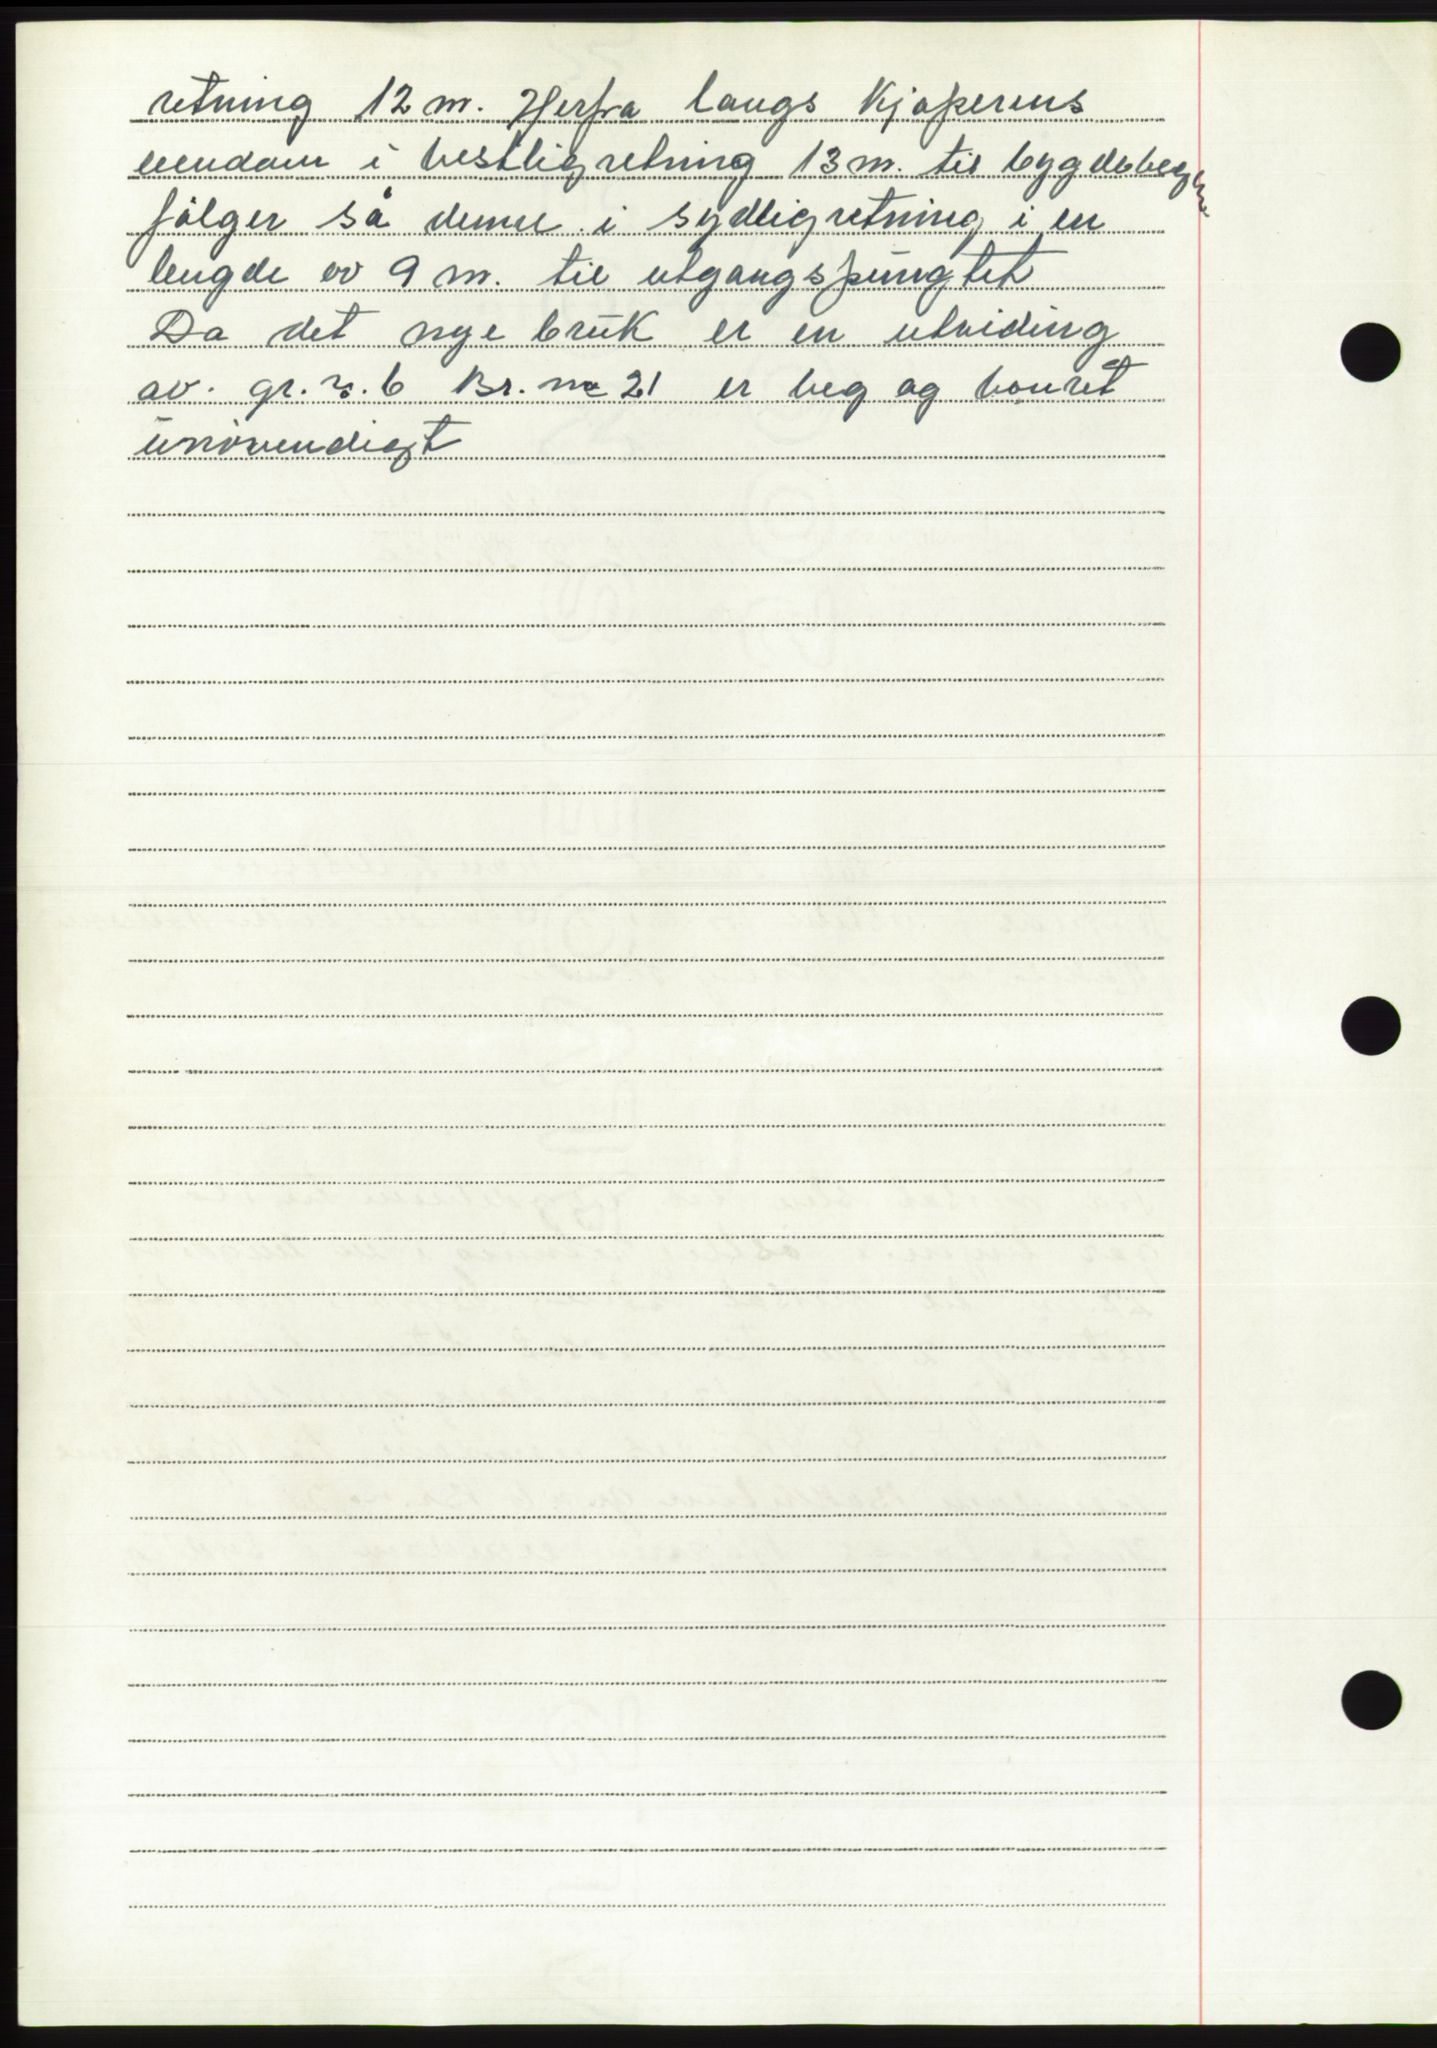 retning 12 m. Herfra langs Kjøperens
eiendom i vestligretning 13 m. til bygdeveg
følger så denne i sydligretning i en
lengde av 9 m. til utgangspungtet
Da det nye bruk er en utviding
av. gr. n. 6 Br. no 21 er veg og vanret
unövendigt